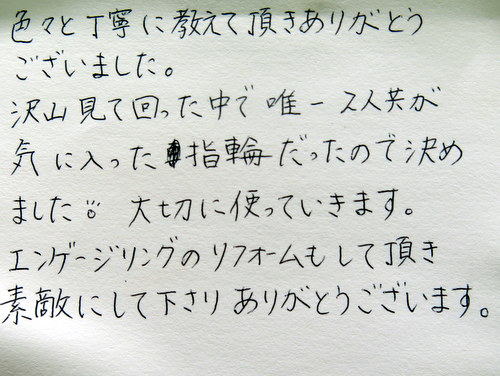 色々と丁寧に教えて頂きありがとう
ございました。
沢山見て回った中で唯一2人共が
気に入った指輪だったので決め
ました 大切に使っていきます。
エンゲージリングのリフォームもして頂き
素敵にして下さり ありがとうございます。